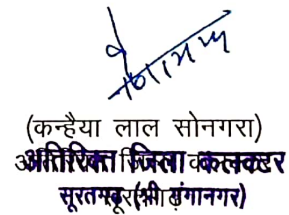 (कन्हैया लाल सोनगरा)
अतिरिक्त जिला कलक्टर
सूरतगढ़ (श्री गंगानगर)